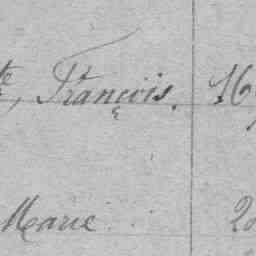 te, François. 16
Marie 20